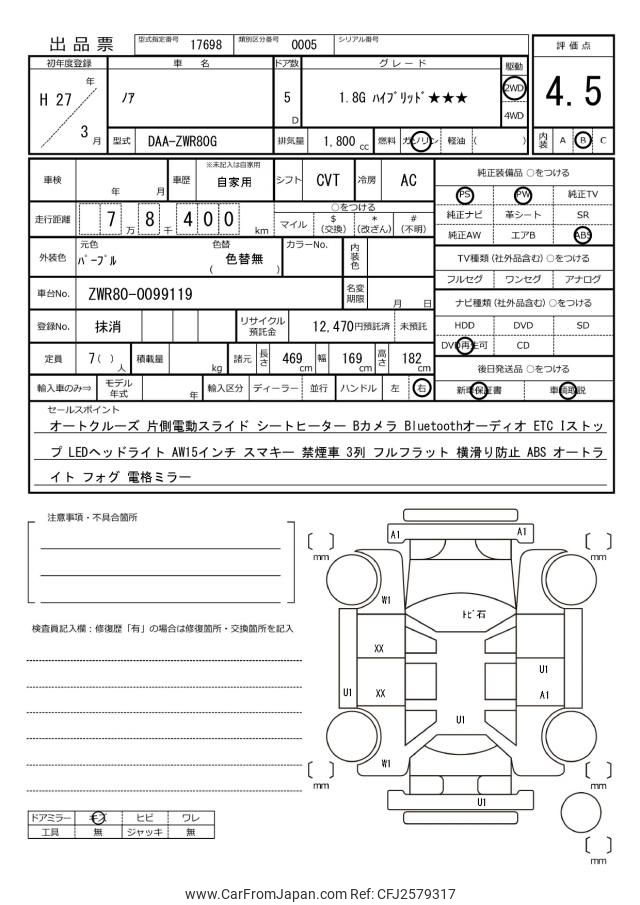 出品票 型式指定番号 17698 類別区分番号 0005 シリアル番号
評価点
4.5
内装 A B C
初年度登録 車名 ドア数 グレード 駆動
H 27 年 / 3 月 ノア 5 D 1.8G ハイブリッド★★★ 2WD 4WD
型式 DAA-ZWR80G 排気量 1,800 cc 燃料 ガソリン 軽油 ( )
車検 年 月 車歴 ※未記入は自家用 自家用 シフト CVT 冷房 AC
走行距離 7 万 8 千 4 0 0 km
○をつける
マイル $ (交換) * (改ざん) # (不明)
外装色 元色 パープル 色替 ( 色替無 ) カラーNo. 内装色
車台No. ZWR80-0099119 名変期限 月 日
登録No. 抹消 リサイクル預託金 12,470円預託済 未預託
定員 7 ( ) 人 積載量 kg 諸元 長さ 469 cm 幅 169 cm 高さ 182 cm
輸入車のみ⇒ モデル年式 年 輸入区分 ディーラー 並行 ハンドル 左 右
純正装備品 ○をつける
PS PW 純正TV
純正ナビ 革シート SR
純正AW エアB ABS
TV種類 (社外品含む) ○をつける
フルセグ ワンセグ アナログ
ナビ種類 (社外品含む) ○をつける
HDD DVD SD
DVD再生可 CD
後日発送品 ○をつける
新車保証書 車輌取説
セールスポイント
オートクルーズ 片側電動スライド シートヒーター Bカメラ Bluetoothオーディオ ETC Iストッ
プ LEDヘッドライト AW15インチ スマキー 禁煙車 3列 フルフラット 横滑り防止 ABS オートラ
イト フォグ 電格ミラー
注意事項・不具合箇所
検査員記入欄:修復歴「有」の場合は修復箇所・交換箇所を記入
ドアミラー キズ ヒビ ワレ
工具 無 ジャッキ 無
A1 A1
mm mm
W1
トビ石
XX
U1
U1 XX A1
U1
W1
mm mm
U1
mm
www.CarFromJapan.com Ref: CFJ2579317